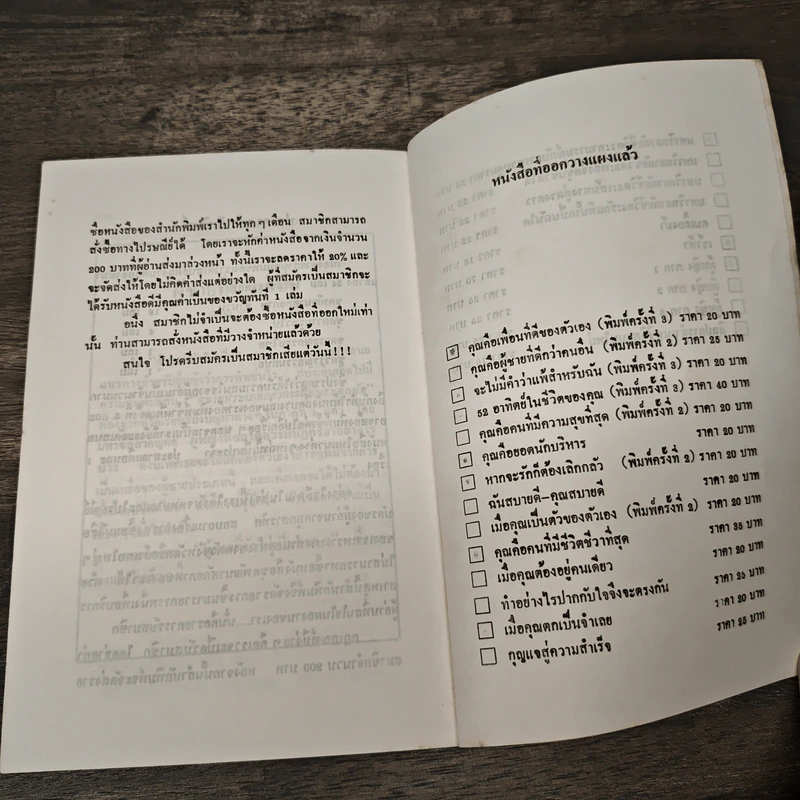 ซื้อหนังสือของสำนักพิมพ์เราไปให้ทุก ๆ เดือน สมาชิกสามารถ
สั่งซื้อทางไปรษณีย์ได้ โดยเราจะหักค่าหนังสือจากเงินจำนวน
200 บาทที่ผู้อ่านส่งมาล่วงหน้า ทั้งนี้เราจะลดราคาให้ 20% และ
จะจัดส่งให้โดยไม่คิดค่าส่งแต่อย่างใด ผู้ที่สมัครเป็นสมาชิกจะ
ได้รับหนังสือดีมีคุณค่าเป็นของขวัญทันที 1 เล่ม
อนึ่ง สมาชิกไม่จำเป็นจะต้องซื้อหนังสือที่ออกใหม่เท่า
นั้น ท่านสามารถสั่งหนังสือที่มีวางจำหน่ายแล้วด้วย
สนใจ โปรดรีบสมัครเป็นสมาชิกเสียแต่วันนี้!!!
หนังสือที่ออกวางแผงแล้ว
คุณคือเพื่อนที่ดีของตัวเอง (พิมพ์ครั้งที่ 3) ราคา 20 บาท
คุณคือผู้ชายที่ดีกว่าคนอื่น (พิมพ์ครั้งที่ 2) ราคา 25 บาท
จะไม่มีคำว่าแพ้สำหรับฉัน (พิมพ์ครั้งที่ 3) ราคา 20 บาท
52 อาทิตย์ในชีวิตของคุณ (พิมพ์ครั้งที่ 3) ราคา 40 บาท
คุณคือคนที่มีความสุขที่สุด (พิมพ์ครั้งที่ 2) ราคา 20 บาท
คุณคือยอดนักบริหาร ราคา 20 บาท
หากจะรักก็ต้องเลิกกลัว (พิมพ์ครั้งที่ 2) ราคา 20 บาท
ฉันสบายดี-คุณสบายดี ราคา 20 บาท
เมื่อคุณเป็นตัวของตัวเอง (พิมพ์ครั้งที่ 2) ราคา 20 บาท
คุณคือคนที่มีชีวิตชีวาที่สุด ราคา 35 บาท
เมื่อคุณต้องอยู่คนเดียว ราคา 20 บาท
ทำอย่างไรปากกับใจจึงจะตรงกัน ราคา 25 บาท
เมื่อคุณตกเป็นจำเลย ราคา 20 บาท
กุญแจสู่ความสำเร็จ ราคา 35 บาท